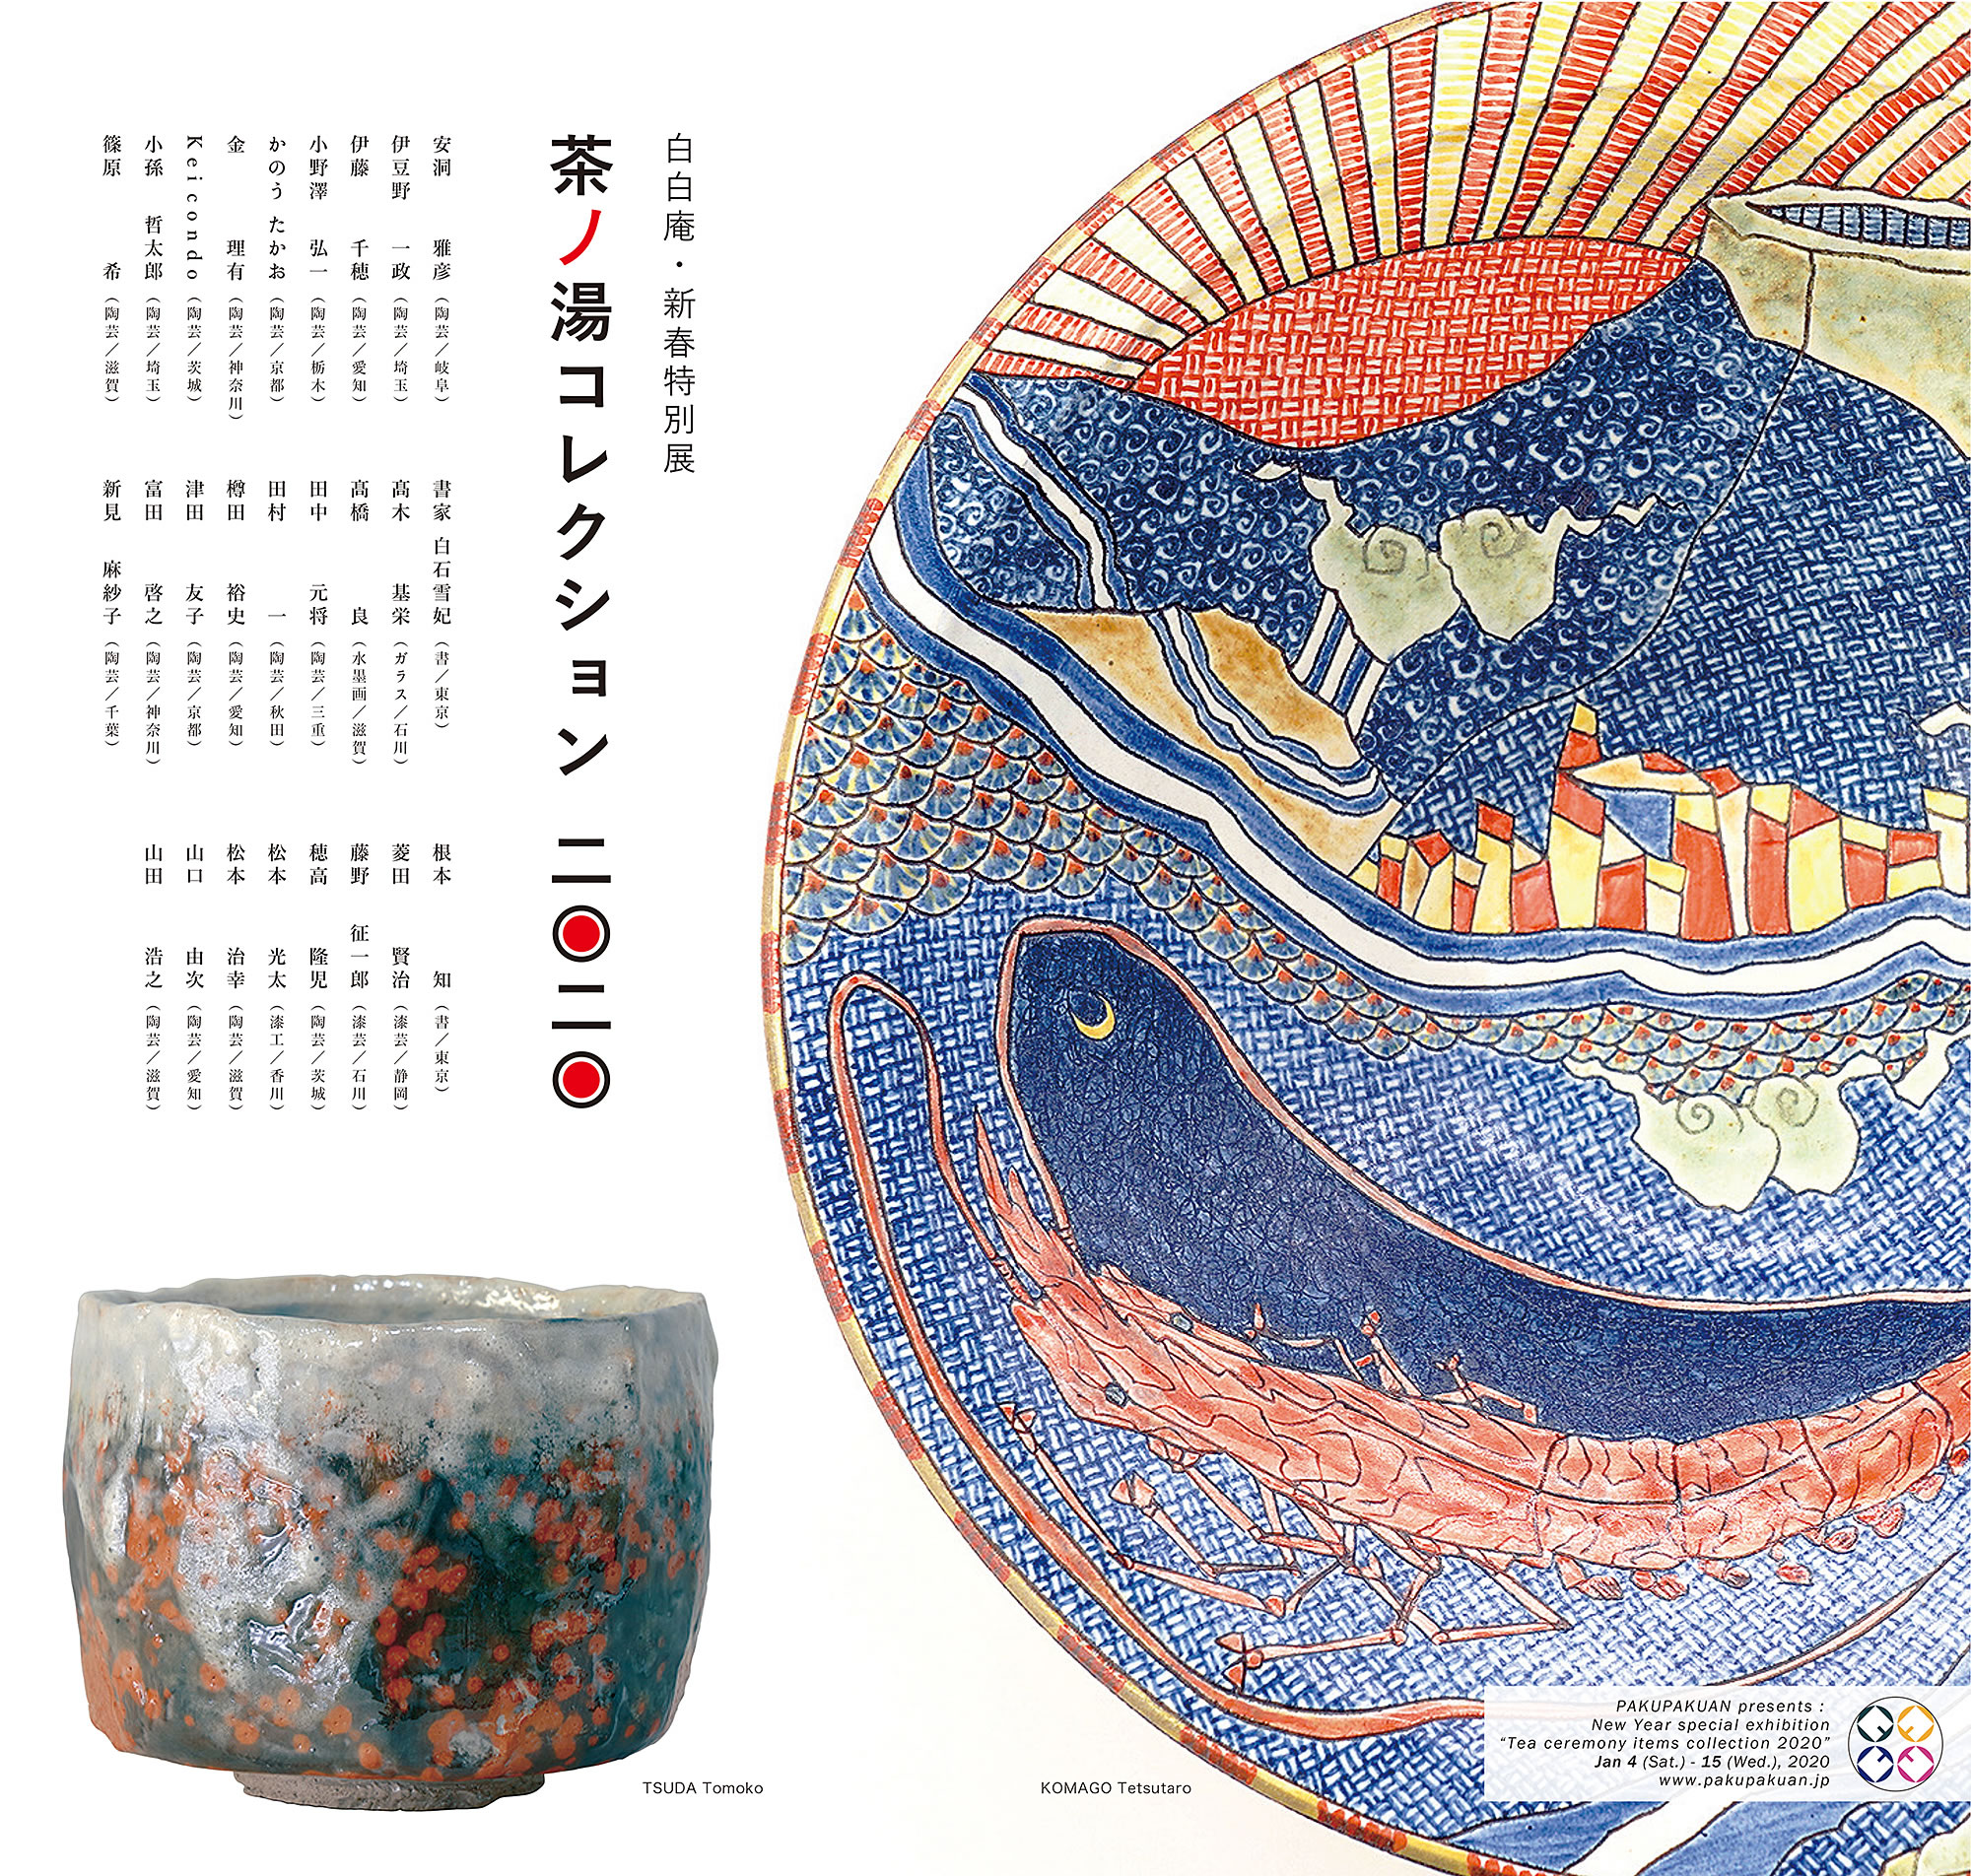 白白庵・新春特別展
茶ノ湯コレクション 二〇二〇
安洞 雅彦（陶芸／岐阜）
伊豆野 一政（陶芸／埼玉）
伊藤 千穂（陶芸／愛知）
小野澤 弘一（陶芸／栃木）
かのう たかお（陶芸／京都）
金 理有（陶芸／神奈川）
Keicondo（陶芸／茨城）
小孫 哲太郎（陶芸／埼玉）
篠原 希（陶芸／滋賀）
書家 白石雪妃（書／東京）
髙木 基栄（ガラス／石川）
髙橋 良（水墨画／滋賀）
田中 元将（陶芸／三重）
田村 一（陶芸／秋田）
樽田 裕史（陶芸／愛知）
津田 友子（陶芸／京都）
富田 啓之（陶芸／神奈川）
新見 麻紗子（陶芸／千葉）
根本 知（書／東京）
菱田 賢治（漆芸／静岡）
藤野 征一郎（漆芸／石川）
穂高 隆児（陶芸／茨城）
松本 光太（漆工／香川）
松本 治幸（陶芸／滋賀）
山口 由次（陶芸／愛知）
山田 浩之（陶芸／滋賀）
TSUDA Tomoko
KOMAGO Tetsutaro
PAKUPAKUAN presents :
New Year special exhibition
“Tea ceremony items collection 2020”
Jan 4 (Sat.) - 15 (Wed.), 2020
www.pakupakuan.jp